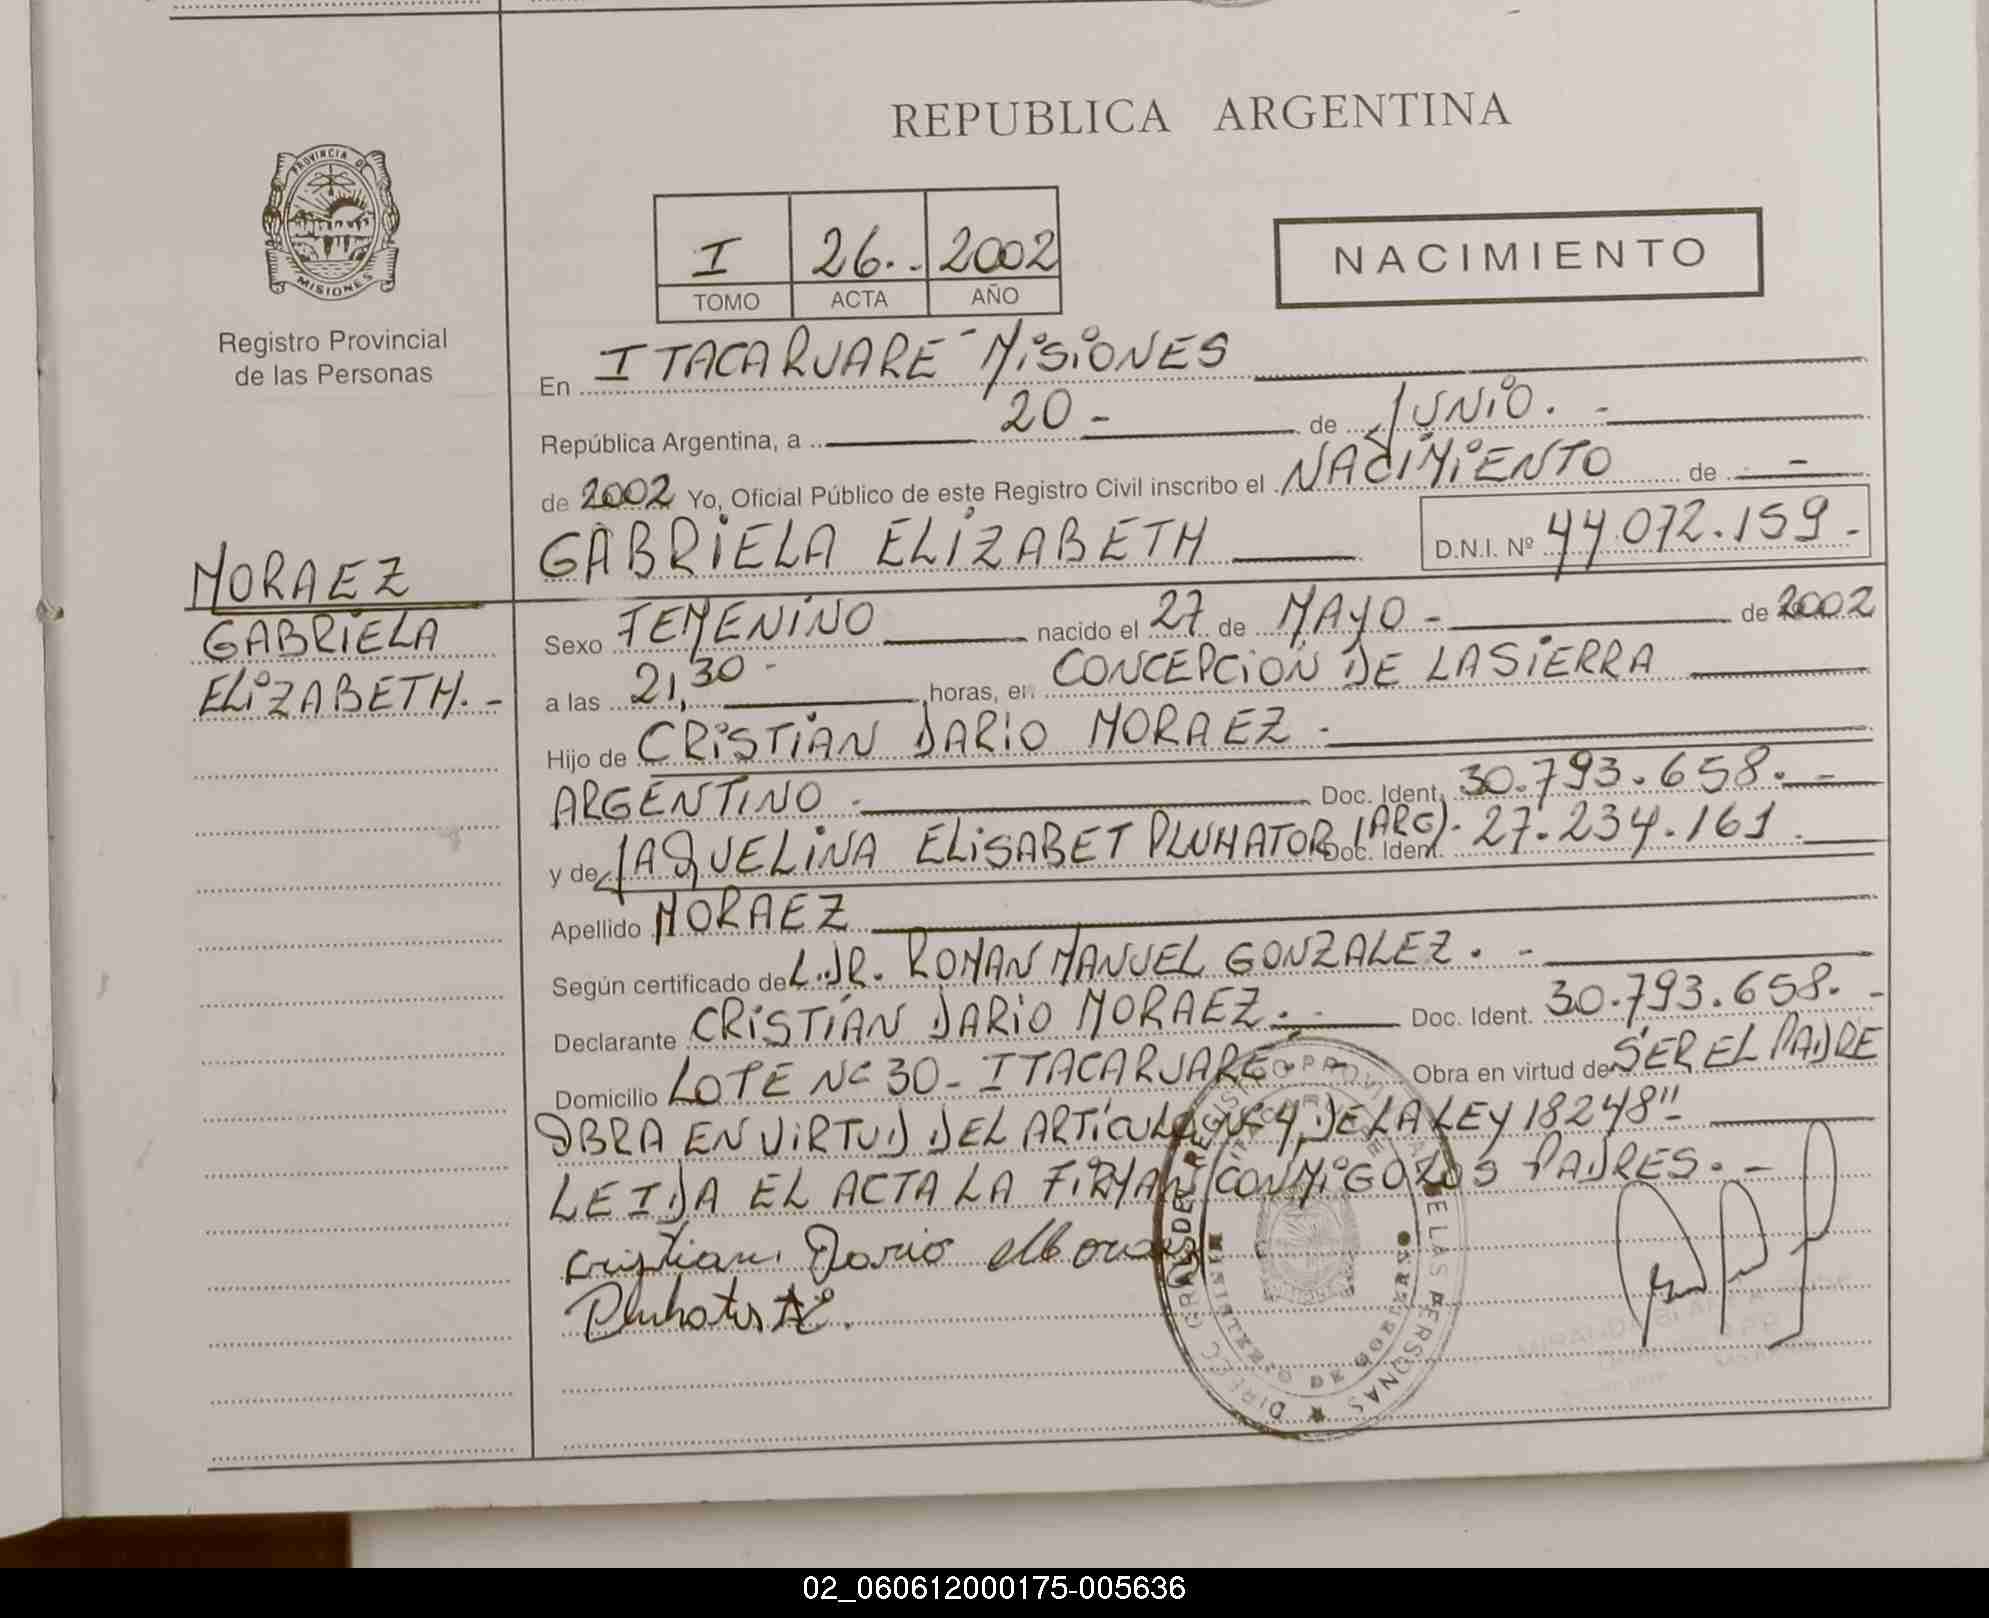 REPUBLICA ARGENTINA
PROVINCIA DE MISIONES
Registro Provincial
de las Personas
I 26.- 2002
TOMO ACTA AÑO
NACIMIENTO
En ITACARUARE - MISIONES
República Argentina, a 20 - de JUNIO. -
de 2002 Yo, Oficial Público de este Registro Civil inscribo el NACIMIENTO de -
GABRIELA ELIZABETH D.N.I. Nº 44.072.159.-
MORAEZ
GABRIELA
ELIZABETH. -
Sexo FEMENINO nacido el 27 de MAYO - de 2002
a las 21,30 - horas, en CONCEPCION DE LA SIERRA
Hijo de CRISTIAN DARIO MORAEZ -
ARGENTINO - Doc. Ident. 30.793.658. -
y de JAQUELINA ELISABET PLUHATOR (ARG). Doc. Ident. 27.234.161
Apellido MORAEZ
Según certificado de L.DR. ROMAN MANUEL GONZALEZ. -
Declarante CRISTIAN DARIO MORAEZ. - Doc. Ident. 30.793.658. -
Domicilio LOTE Nº 30 - ITACARUARE Obra en virtud de SER EL PADRE
OBRA EN VIRTUD DEL ARTICULO Nº 4 DE LA LEY 18248"
LEIDA EL ACTA LA FIRMAN CONMIGO LOS PADRES. -
Cristian Dario Moraez
DIRECC GRAL DE REGISTRO PROVINCIAL DE LAS PERSONAS
MINISTERIO DE GOBIERNO
02_060612000175-005636